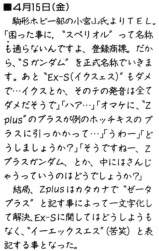 ■４月15日(金)
駒形ホビー部の小宮山氏よりＴＥＬ。
「困った事に、“スペリオル”って名称
も通らないんですよ、登録商標。だか
ら、“Ｓガンダム”を正式名称でいきま
す。あと“Ex-S(イクスェス)”もダメ
で…イクスとか、その手の発音は全て
ダメだそうで」「ハア…」「オマケに、“Ｚ
plus”のプラスが例のホッキキスのプ
ラスに引っかかって…」「うわー」「ど
うしましょうか？」「そうですねー、Ｚ
プラスガンダム、とか、中にはさんじ
ゃうっていうのはどうでしょうか？」
結局、Ｚplusはカタカナで“ゼータ
プラス”と記す事によって一文字化し
て解決。Ex-Sに関してはどうしようも
なく、“イーエックスエス”(苦笑)と表
記する事となった。